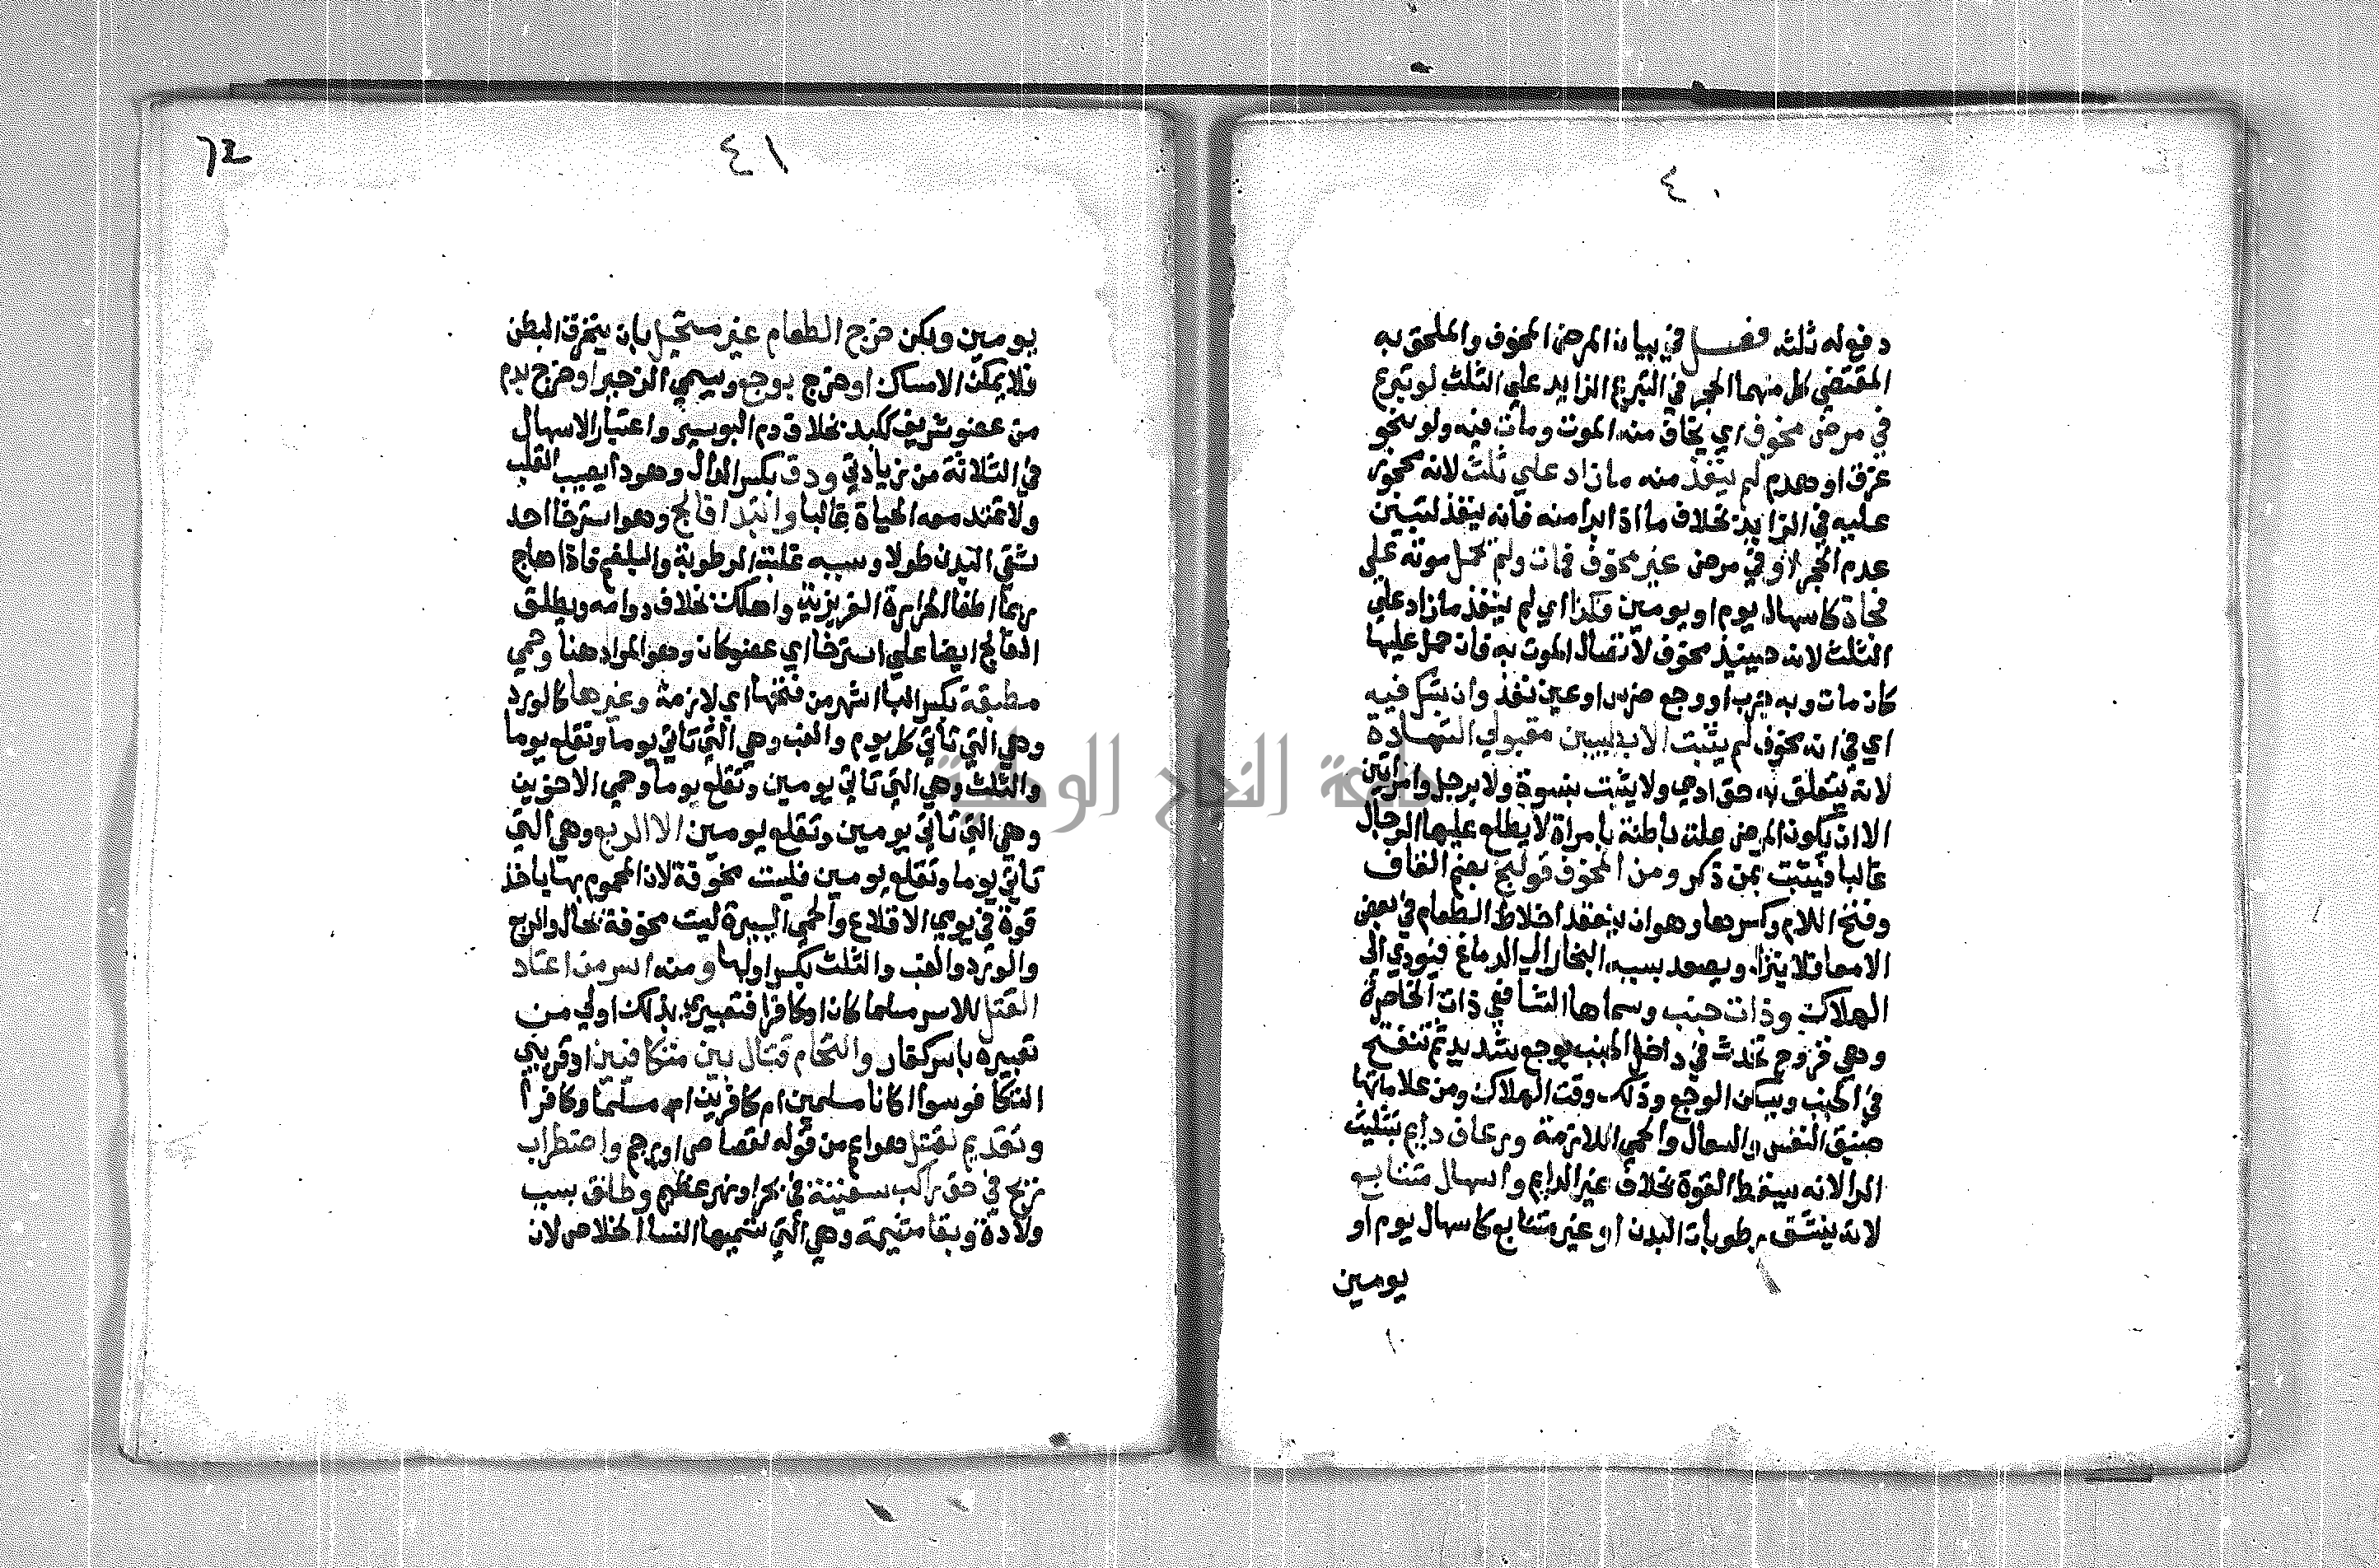 ٤٠
دفوله ثلثه فصل في بيان المرض المخوف والملحق به
المقتضي كل منهما الحجر في التبرع الزايد علي الثلث لو تبرع
في مرض مخوف اي يخاف منه الموت ومات فيه ولو بنحو
غرق او هدم لم ينفذ منه ما زاد علي ثلث لانه محجور
عليه في الزايد بخلاف ما اذا ابرا منه فانه ينفذ لتبين
عدم الحجر او في مرض غير مخوف فمات ولم يحمل موته علي
فجاة كاسهال يوم او يومين فكذا اي لم ينفذ ما زاد علي
الثلث لانه حينيذ مخوف لاتصال الموت به فان حمل عليها
كان مات وبه جرب او وجع ضرس او عين نفذ وان شك فيه
اي في انه مخوف لم يثبت الا بطبيبين مقبولي الشهادة
لانه يتعلق به حق ادمي ولا يثبت بنسوة ولا برجل وامراتين
الا ان يكون المرض علة باطنة بامراة لا يطلع عليها الرجال
غالبا فيثبت بمن ذكر ومن المخوف قولنج بضم القاف
وفتح اللام وكسرها وهو ان ينعقد اخلاط الطعام في بعض
الامعا فلا ينزل ويصعد بسببه البخار الي الدماغ فيودي الي
الهلاك وذات جنب وسماها الشافعي ذات الخاصرة
وهي قروح تحدث في داخل الجنب بوجع شديد ثم تنفتح
في الجنب ويسكن الوجع وذلك وقت الهلاك ومن علاماتها
ضيق النفس والسعال والحمي اللازمة ورعاف دايم بتثليث
الرا لانه يسقط القوة بخلاف غير الدايم واسهال متتابع
لانه ينشف رطوبات البدن او غير متتابع كاسهال يوم او
يومين
٤١
يومين ولكن خرج الطعام غير مستحيل بان يتخرق البطن
فلا يمكن الامساك او خرج بوجع ويسمي الزحير او خرج بدم
من عضو شريف ككبد بخلاف دم البواسير واعتبار الاسهال
في الثلاثة من زيادتي ودق بكسر الدال وهو دا يصيب القلب
ولا تمتد معه الحياة غالبا وابتدا فالج وهو استرخا احد
شقي البدن طولا وسببه غلبة الرطوبة والبلغم فاذا هاج
ربما اطفا الحرارة الغريزية واهلك بخلاف دوامه ويطلق
الفالج ايضا علي استرخا اي عضو كان وهو المراد هنا وحمي
مطبقة بكسر البا اشهر من فتحها اي لازمة وغيرها كالورد
وهي التي تاتي كل يوم والغب وهي التي تاتي يوما وتقلع يوما
والثلث وهي التي تاتي يومين وتقلع يوما وحمي الاخوين
وهي التي تاتي يومين وتقلع يومين الا الربع وهي التي
تاتي يوما وتقلع يومين فليست مخوفة لان المحموم بها ياخذ
قوة في يومي الاقلاع والحمي اليسيرة ليست مخوفة بحال والربع
والورد والغب والثلث بكسر اولها ومنه اسر من اعتاد
القتل للاسر مسلما كان او كافرا فتعبيري بذلك اولي من
تعبيره باسر كفار والتحام قتال بين متكافيين او قريبي
التكافو سوا كانا مسلمين ام كافرين ام مسلما وكافرا
وتقديم لقتل هو اعم من قوله لقصاص او رجم واضطراب
ريح في حق راكب سفينة في بحر او نهر عظيم وطلق بسبب
ولادة وبقا مشيمة وهي التي تسميها النسا الخلاص لان